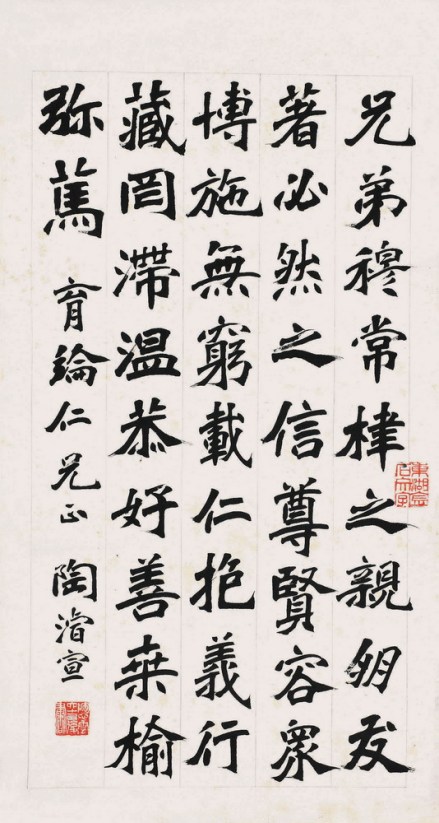 兄弟穆常棣之親朋友
著必然之信尊賢容眾
博施無窮載仁抱義行
藏罔滯温恭好善桒榆
弥篤 育綸仁兄正 陶濬宣